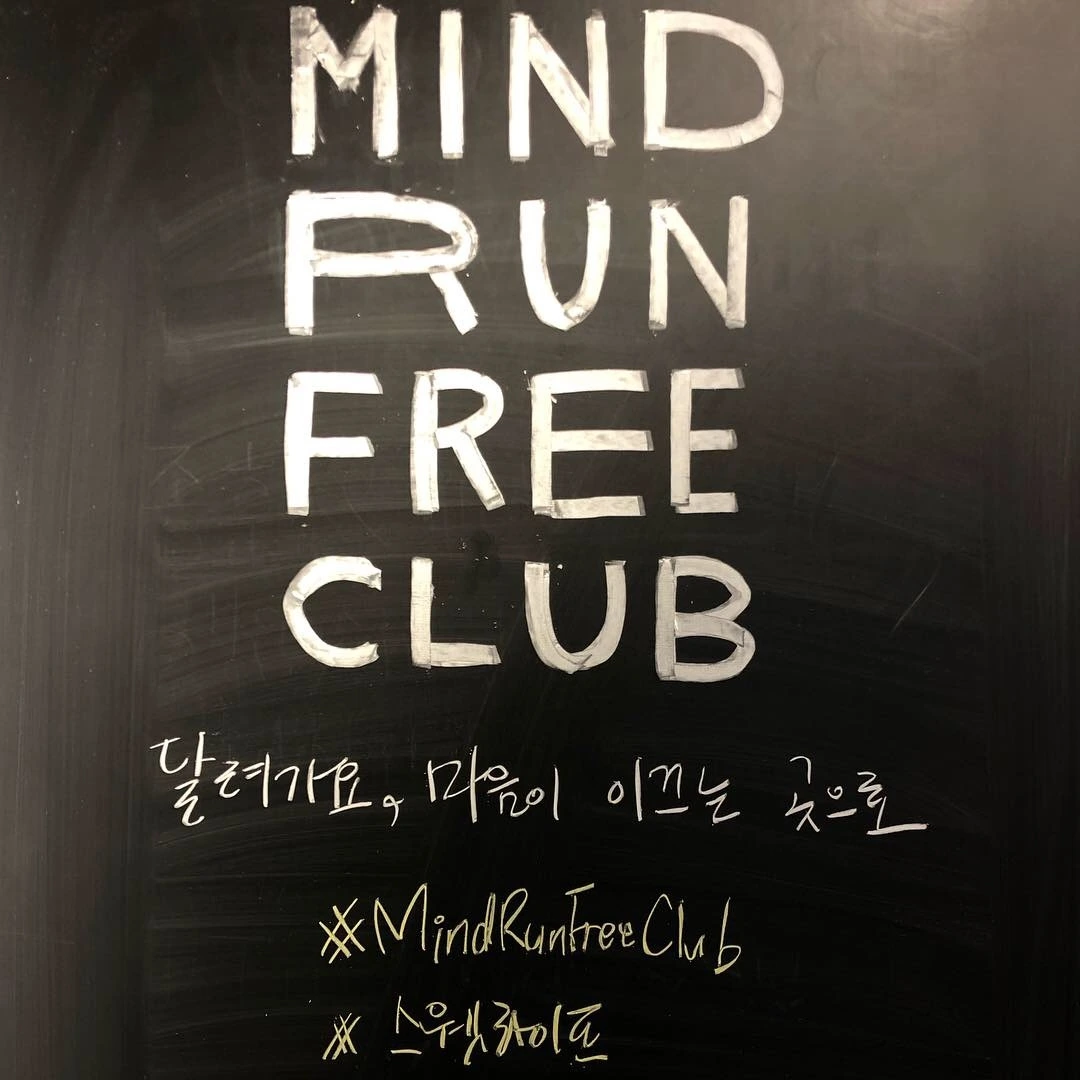 MIND
RUN
FREE
CLUB
달려가요, 마음이 이끄는 곳으로
#MindRunFreeClub
# 스웻라이프